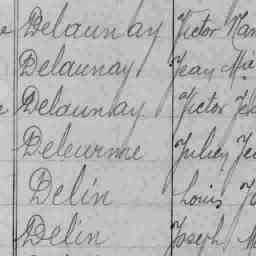 Delaunay Victor
Delaunay Jean
Delaunay Victor
Deleurme Julien
Delin Louis
Delin Joseph